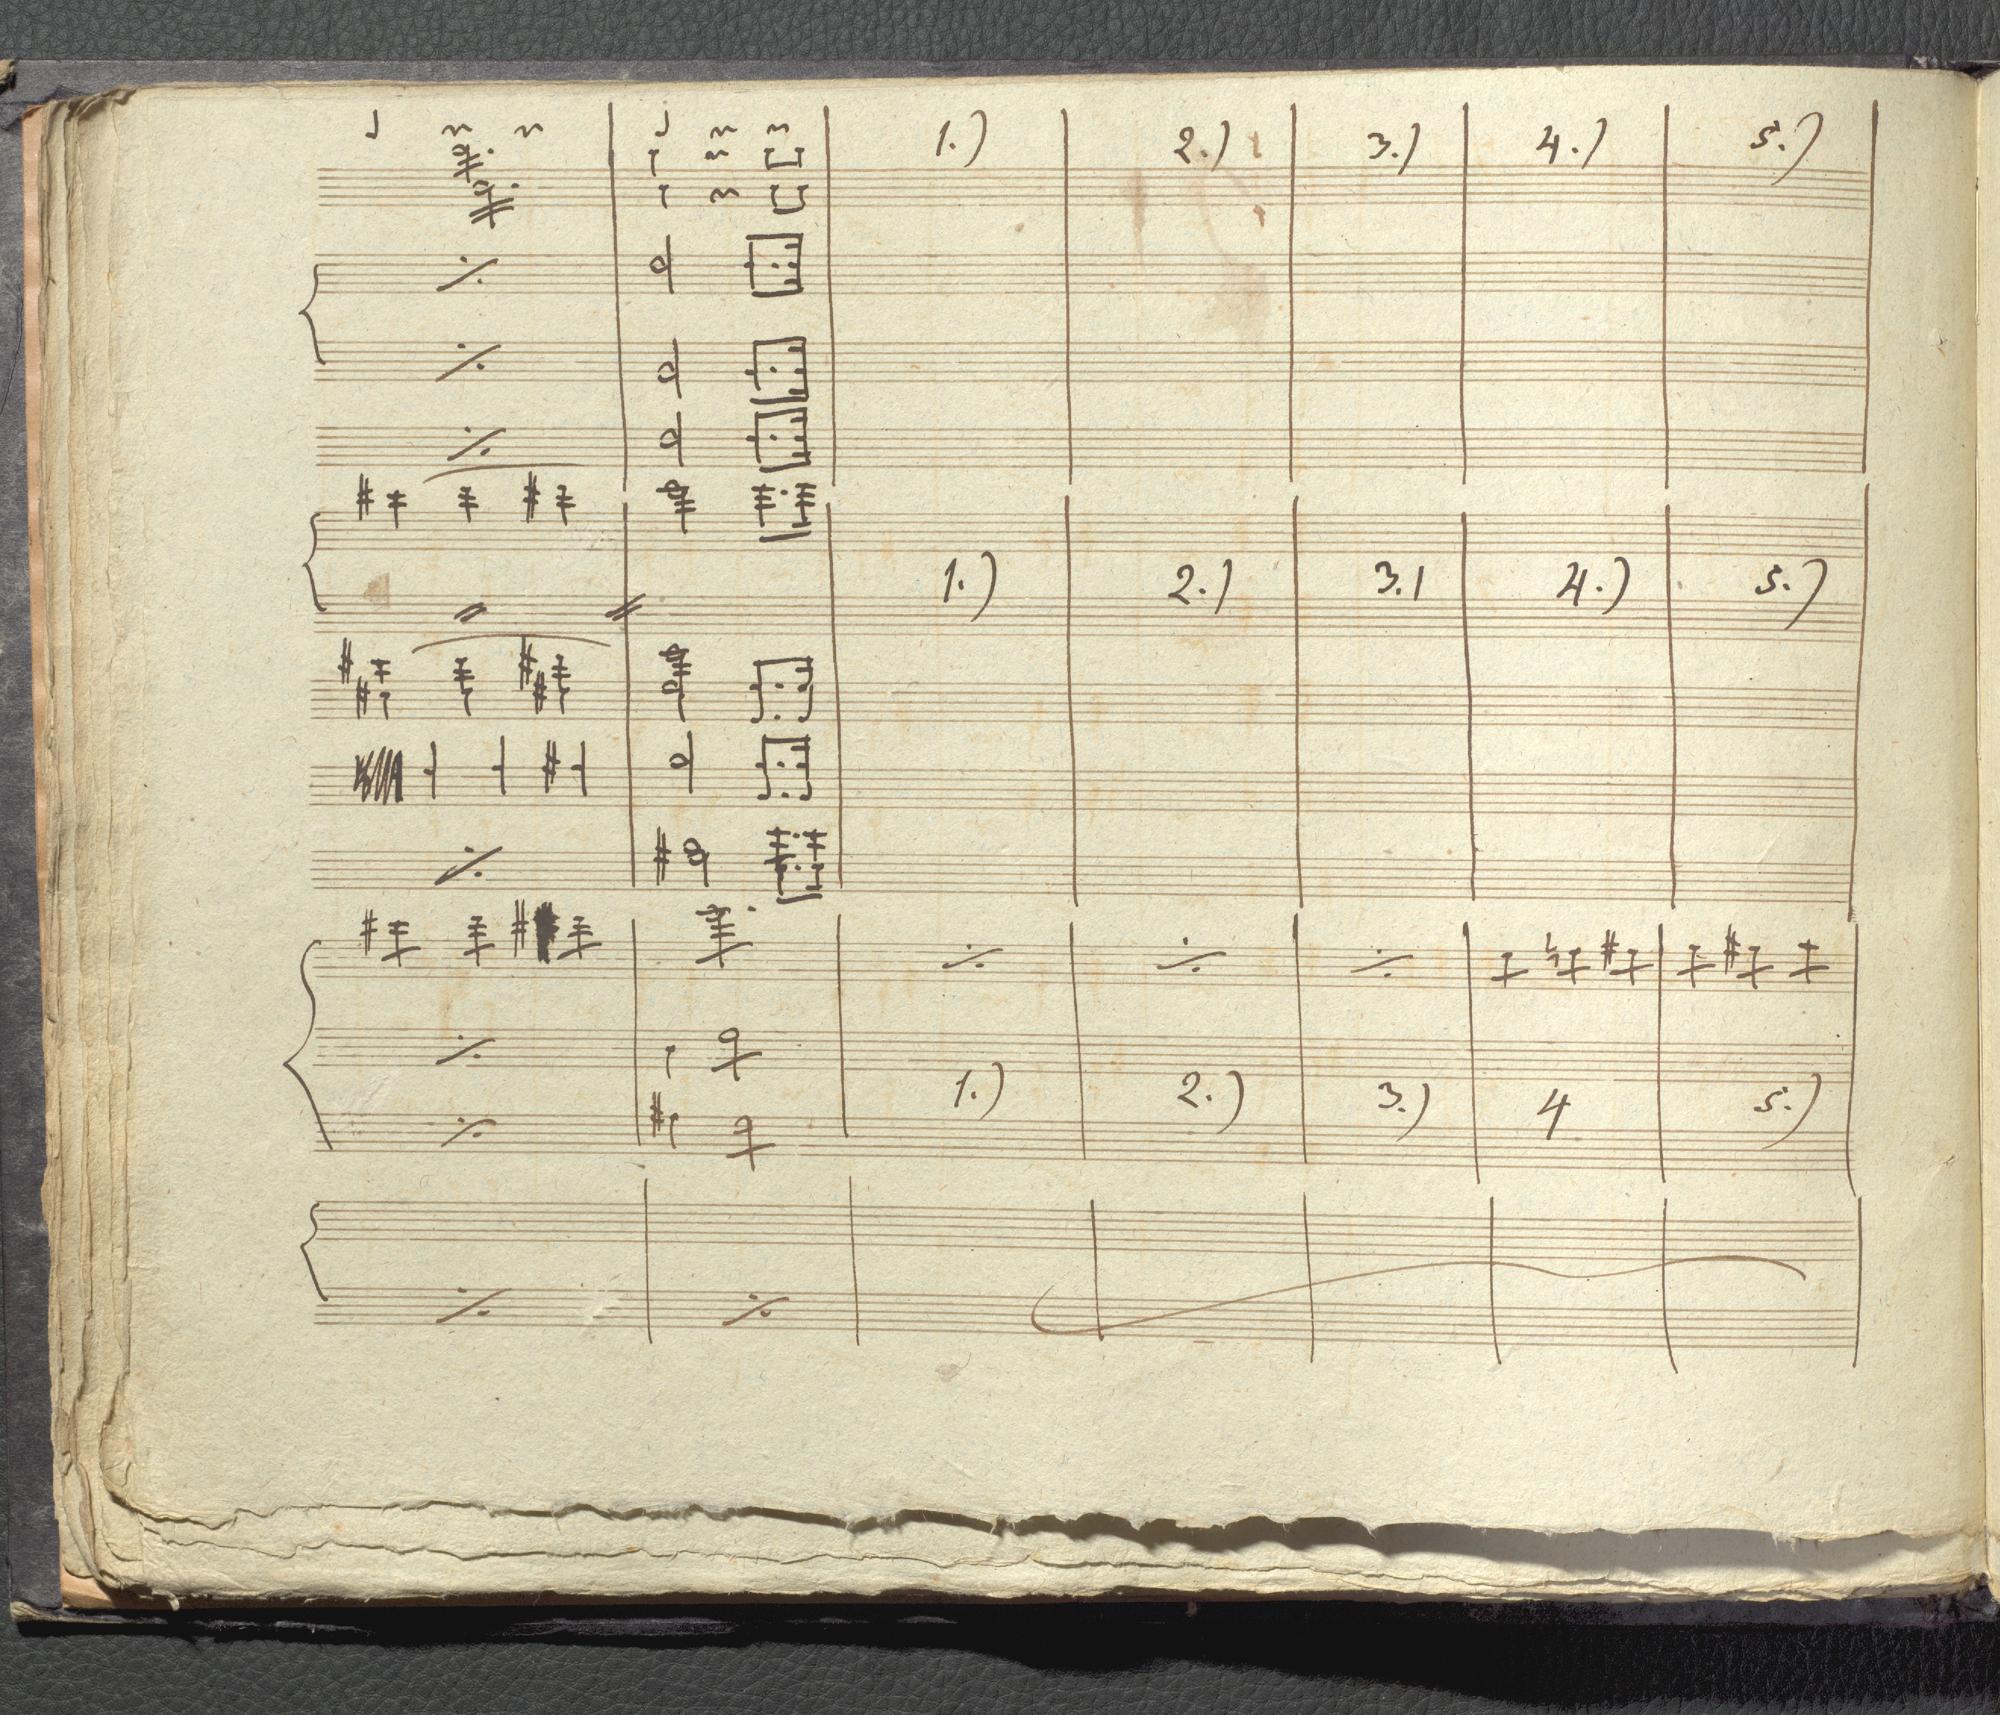 1.) 2.) 3.) 4.) 5.)
1.) 2.) 3.) 4.) 5.)
1.) 2.) 3.) 4 5.)